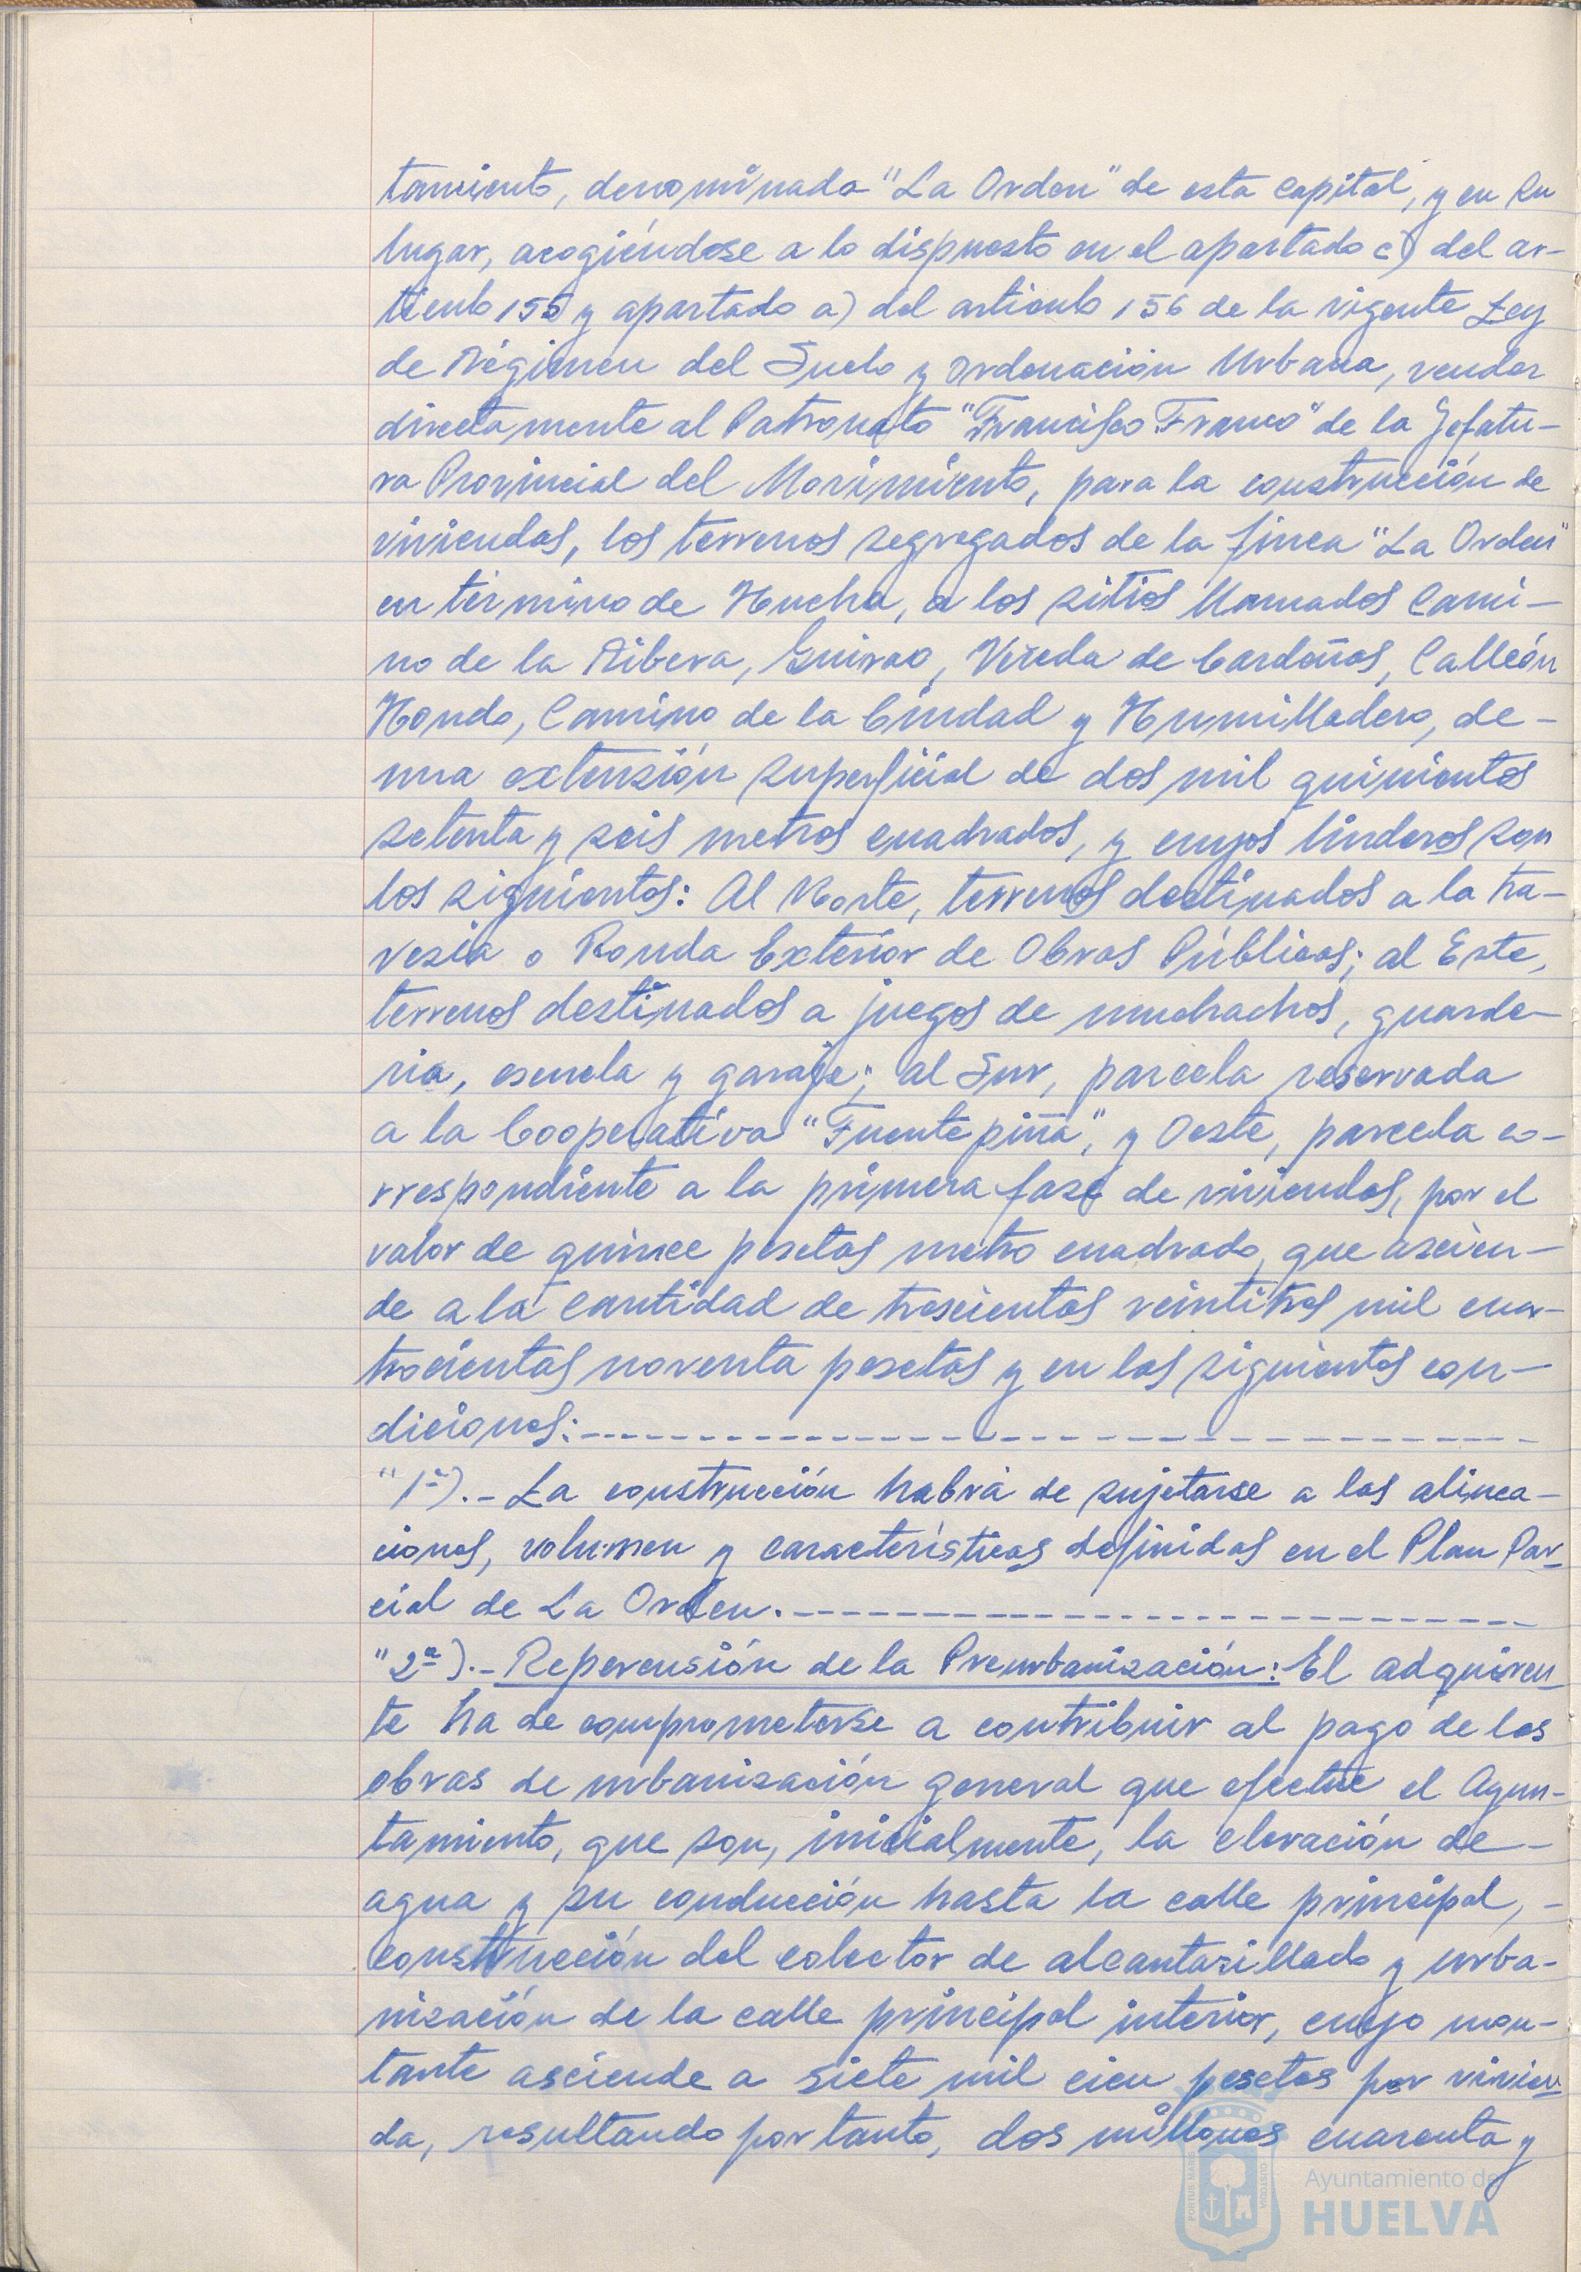 tamiento, denominada "La Orden" de esta capital, y en su
lugar, acogiéndose a lo dispuesto en el apartado c) del ar-
tículo 155 y apartado a) del artículo 156 de la vigente Ley
de Régimen del Suelo y Ordenación Urbana, vender
directamente al Patronato "Francisco Franco" de la Jefatu-
ra Provincial del Movimiento, para la construcción de
viviendas, los terrenos segregados de la finca "La Orden"
en término de Huelva, a los sitios llamados Cami-
no de la Ribera, Guirao, Vereda de Cardeñas, Calleón
Hondo, Camino de la Ciudad y Humilladero, de-
una extensión superficial de dos mil quinientos
setenta y seis metros cuadrados, y cuyos linderos son
los siguientes: Al Norte, terrenos destinados a la tra-
vesía o Ronda Exterior de Obras Públicas; al Este,
terrenos destinados a juegos de muchachos, guarde-
ria, escuela y garaje; al Sur, parcela reservada
a la Cooperativa "Fuentepiña", y Oeste, parcela co-
rrespondiente a la primera fase de viviendas, por el
valor de quince pesetas metro cuadrado, que ascien-
de a la cantidad de trescientas veintitres mil cua-
trocientas noventa pesetas y en las siguientes con-
diciones:
"1ª).- La construcción habrá de sujetarse a las alinea-
ciones, volumen y características definidas en el Plan Par-
cial de La Orden.
"2ª).- Repercusión de la Preurbanización: El adquiren-
te ha de comprometerse a contribuir al pago de las
obras de urbanización general que efectúe el Ayun-
tamiento, que son, inicialmente, la elevación de-
agua y su conducción hasta la calle principal,-
construcción del colector de alcantarillado y urba-
nización de la calle principal interior, cuyo mon-
tante asciende a siete mil cien pesetas por vivien-
da, resultando por tanto, dos millones cuarenta y
Ayuntamiento de
HUELVA